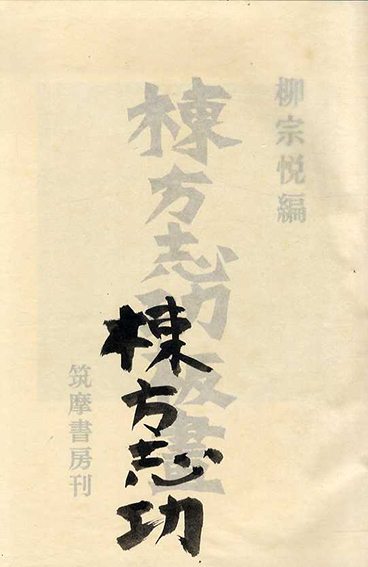 柳宗悦編
棟方志功板畫
棟方志功
筑摩書房刊